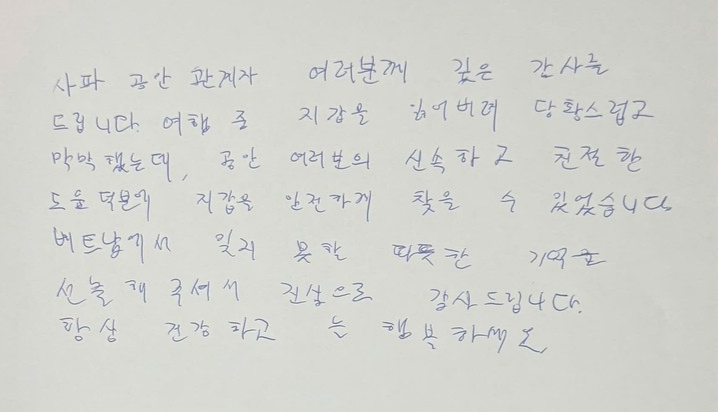 사파 공안 관계자 여러분께 깊은 감사를
드립니다. 여행 중 지갑을 잃어버려 당황스럽고
막막했는데, 공안 여러분의 신속하고 친절한
도움 덕분에 지갑을 안전하게 찾을 수 있었습니다
베트남에서 잊지 못할 따뜻한 기억을
선물해 주셔서 진심으로 감사드립니다.
항상 건강하고 늘 행복하세요